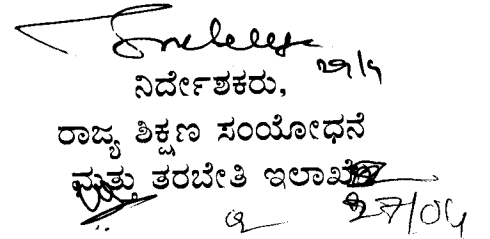 ನಿರ್ದೇಶಕರು,
ರಾಜ್ಯ ಶಿಕ್ಷಣ ಸಂಯೋಧನೆ
ಮತ್ತು ತರಬೇತಿ ಇಲಾಖೆ
27/04